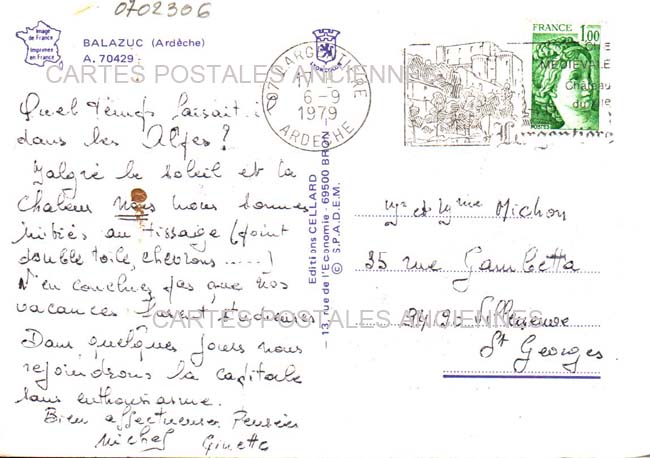 0702306
Image
de France
Imprimée
en France
BALAZUC (Ardèche)
A. 70429
CARTES POSTALES ANCIENNES
07 LARGENTIERE
17 H
6-9
1979
ARDECHE
FRANCE
1,00
POSTES
MEDIEVALE
Château
du
Largentière
Quel temps faisait-il
dans les Alpes ?
Malgré le soleil et la
chaleur nous nous sommes
initiés au tissage (point
double toile, chevrons ......)
N'en concluez pas que nos
vacances furent studieuses
Dans quelques jours nous
rejoindrons la capitale
sans enthousiasme.
Bien affectueuses Pensées
Michel Ginette
Editions CELLARD
— 13, rue de l'Economie - 69500 BRON —
© S.P.A.D.E.M.
Mr et Mme Michon
35 rue Gambetta
94190 Villeneuve
St Georges
CARTES POSTALES ANCIENNES